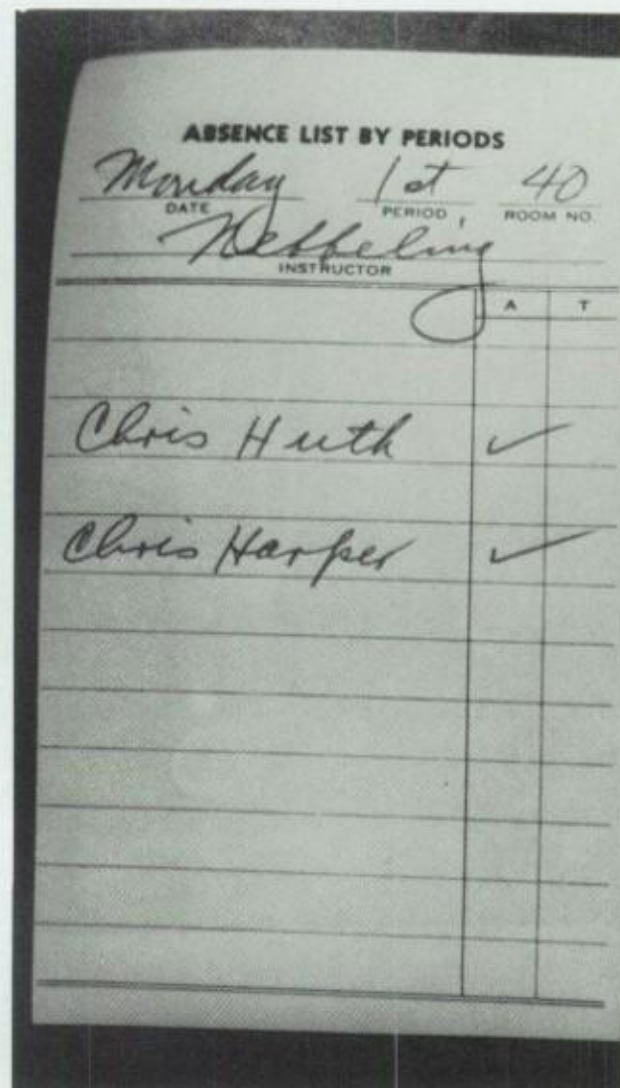 ABSENCE LIST BY PERIODS
Monday 1st 40
DATE PERIOD, ROOM NO.
Nebbeling
INSTRUCTOR
A T
Chris Huth ✓
Chris Harper ✓